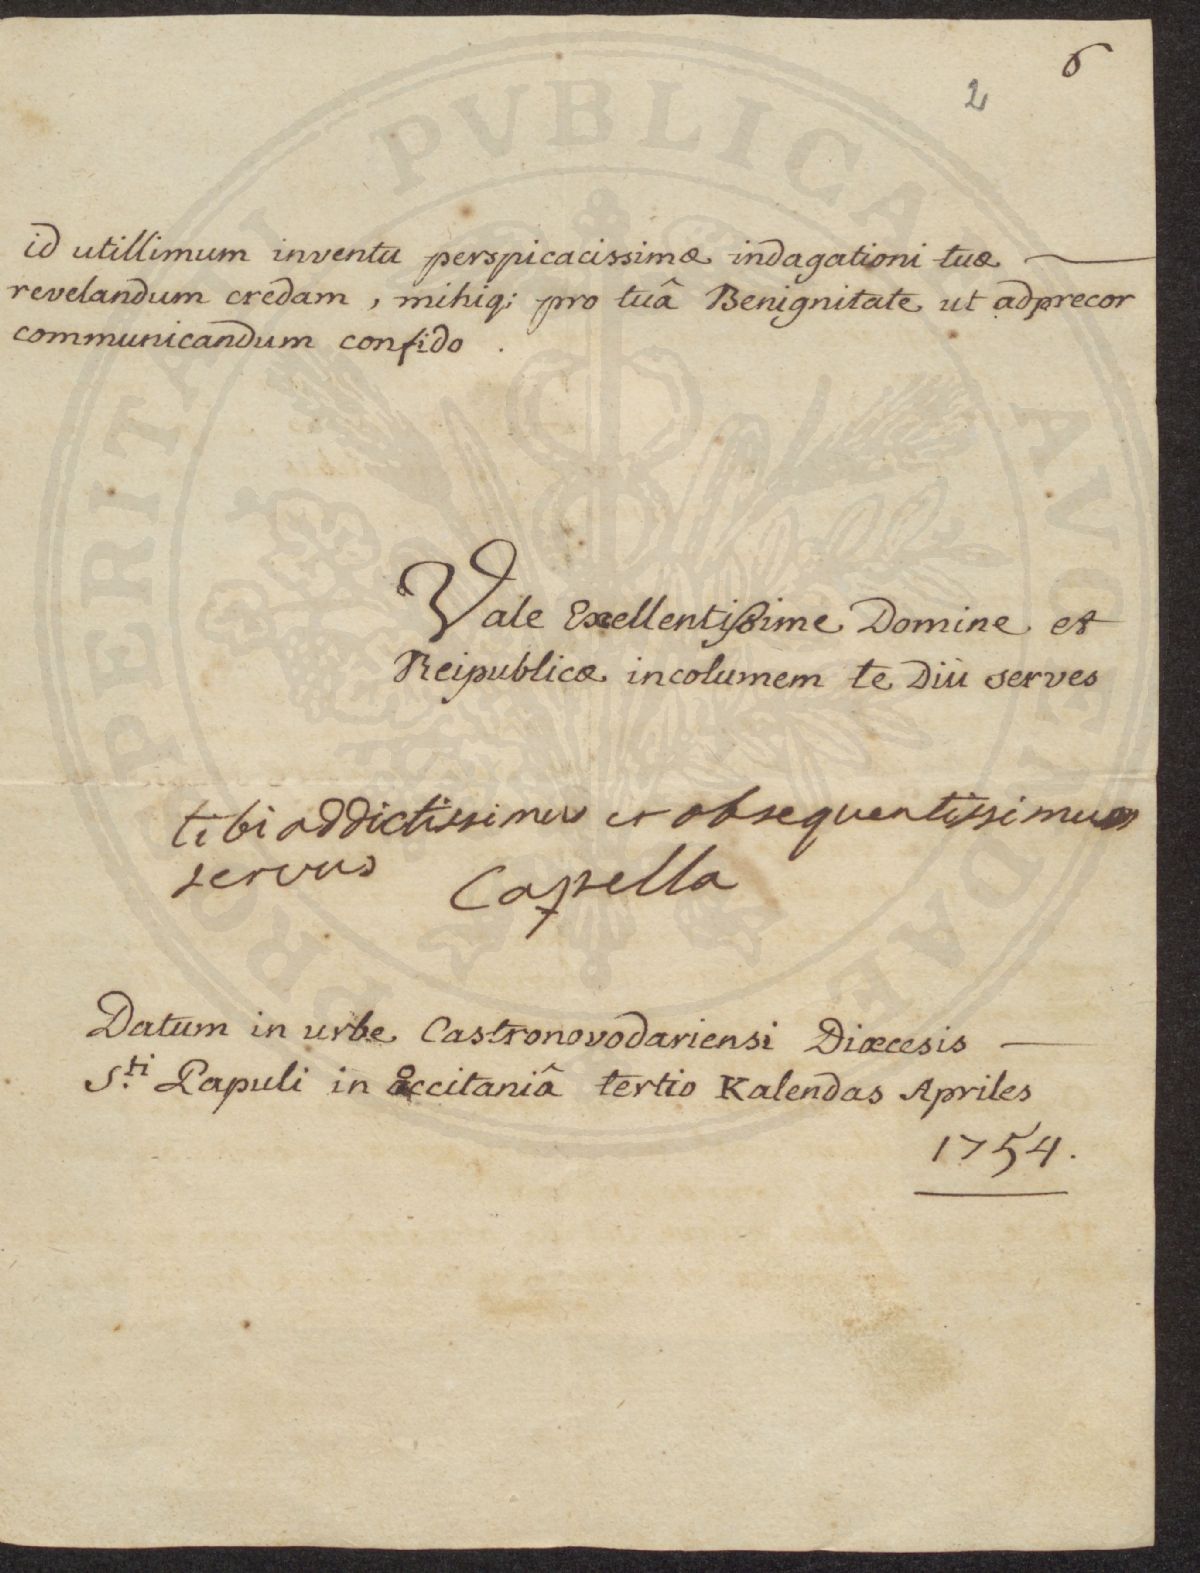 6
2
id utillimum inventu perspicacissimæ indagationi tuæ
revelandum credam, mihiq; pro tuâ Benignitate ut adprecor
communicandum confido.
Vale Excellentissime Domine et
Reipublicæ incolumem te Diù serves
tibi addictissimus et obsequentissimus
servus Capella
Datum in urbe Castronovodariensi Diœcesis
S.ti Papuli in occitaniâ tertio Kalendas Apriles
1754.
PROSPERITATI PVBLICAE AVGENDAE